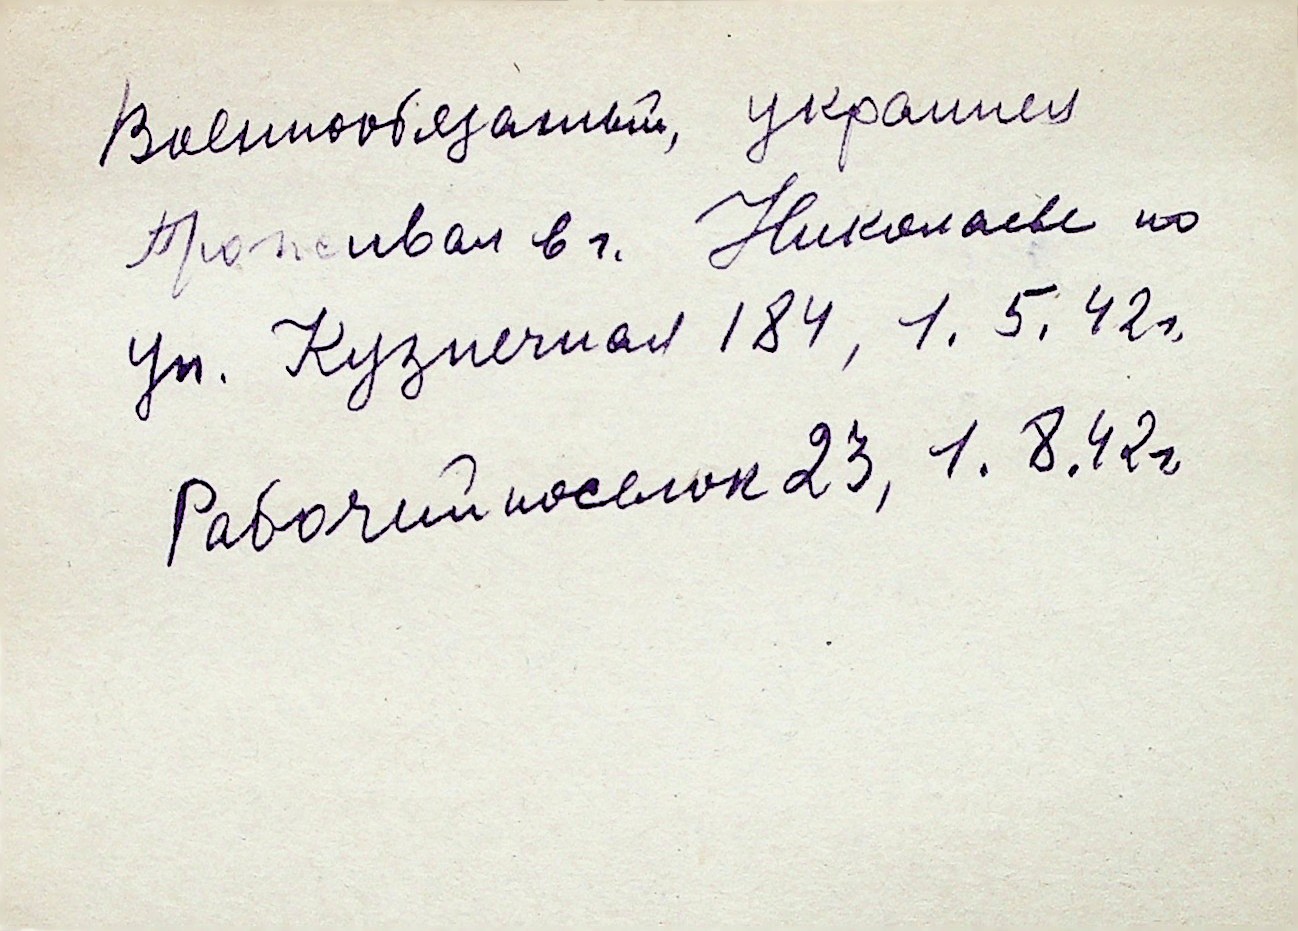 Военнообязанный, украинец
Проживал в г. Николаеве по
ул. Кузнечная 184, 1. 5. 42г.
Рабочий поселок 23, 1. 8. 42г.